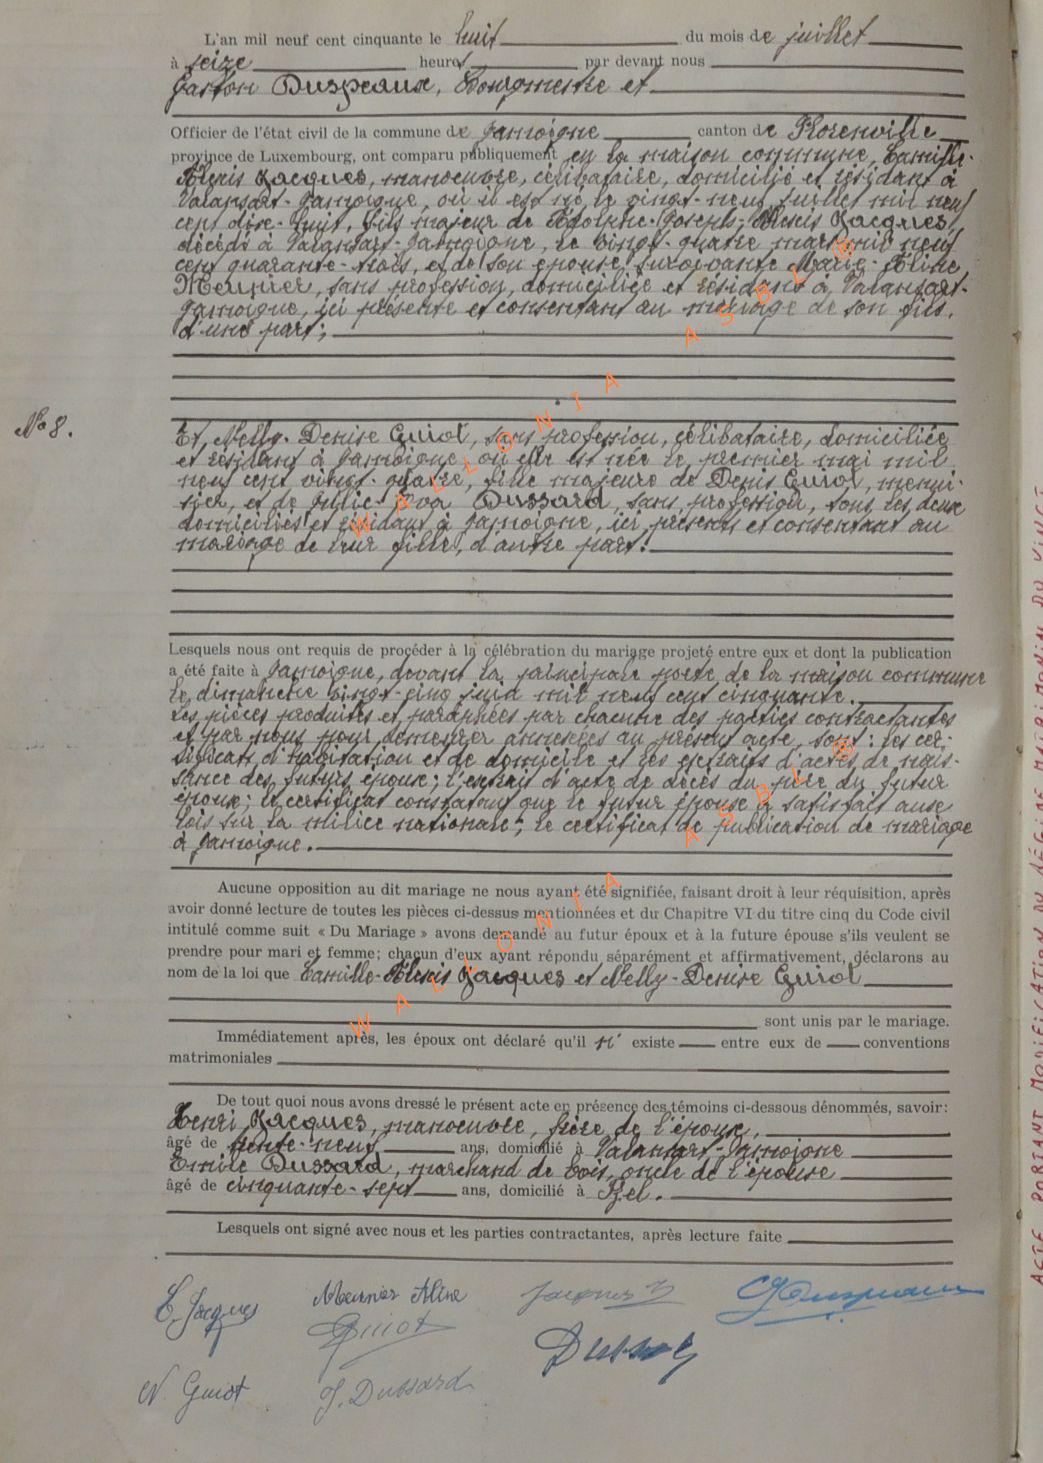 L'an mil neuf cent cinquante le huit du mois de juillet
à seize heures par devant nous
Gaston Duspeaux, Bourgmestre et
Officier de l'état civil de la commune de Jamoigne canton de Florenville
province de Luxembourg, ont comparu publiquement en la maison commune, Camille-
Alexis Jacques, manoeuvre, célibataire, domicilié et résidant à
Valansart-Jamoigne, où il est né le vingt-neuf juillet mil neuf
cent dix-huit, fils majeur de Adolphe-Joseph-Alexis Jacques,
décédé à Valansart-Jamoigne, le vingt-quatre mars mil neuf
cent quarante-trois, et de son épouse survivante Marie-Aline
Meunier, sans profession, domiciliée et résidant à Valansart-
Jamoigne, ici présente et consentant au mariage de son fils,
d'une part;
N° 8.
Et, Nelly-Denise Guiot, sans profession, célibataire, domiciliée
et résidant à Jamoigne, où elle est née le premier mai mil
neuf cent vingt-quatre, fille majeure de Denis Guiot, menui-
sier, et de Dussard, sans profession, tous les deux
domiciliés et résidant à Jamoigne, ici présents et consentant au
mariage de leur fille, d'autre part.
Lesquels nous ont requis de procéder à la célébration du mariage projeté entre eux et dont la publication
a été faite à Jamoigne, devant la principale porte de la maison commune
le dimanche vingt-cinq juin mil neuf cent cinquante.
Les pièces produites et paraphées par chacune des parties contractantes
et par nous pour demeurer annexées au présent acte, sont: les cer-
tificats d'habitation et de domicile et les extraits d'actes de nais-
sance des futurs époux; l'extrait d'acte de décès du père du futur
époux; le certificat constatant que le futur époux a satisfait aux
lois sur la milice nationale; le certificat de publication de mariage
à Jamoigne.
Aucune opposition au dit mariage ne nous ayant été signifiée, faisant droit à leur réquisition, après
avoir donné lecture de toutes les pièces ci-dessus mentionnées et du Chapitre VI du titre cinq du Code civil
intitulé comme suit « Du Mariage » avons demandé au futur époux et à la future épouse s'ils veulent se
prendre pour mari et femme; chacun d'eux ayant répondu séparément et affirmativement, déclarons au
nom de la loi que Camille-Alexis Jacques et Nelly-Denise Guiot
sont unis par le mariage.
Immédiatement après, les époux ont déclaré qu'il n' existe entre eux de conventions
matrimoniales
De tout quoi nous avons dressé le présent acte en présence des témoins ci-dessous dénommés, savoir:
Henri Jacques, manoeuvre, frère de l'époux,
âgé de trente-neuf ans, domicilié à Valansart-Jamoigne
Emile Dussard, marchand de bois, oncle de l'épouse
âgé de cinquante-sept ans, domicilié à Izel.
Lesquels ont signé avec nous et les parties contractantes, après lecture faite
C. Jacques Meunier Aline Jacques H
Guiot
Dussard
N. Guiot J. Dussard
WALLONIA ASBL ®
WALLONIA ASBL ®
ACTE PORTANT MODIFICATION DU RÉGIME MATRIMONIAL DU VINGT